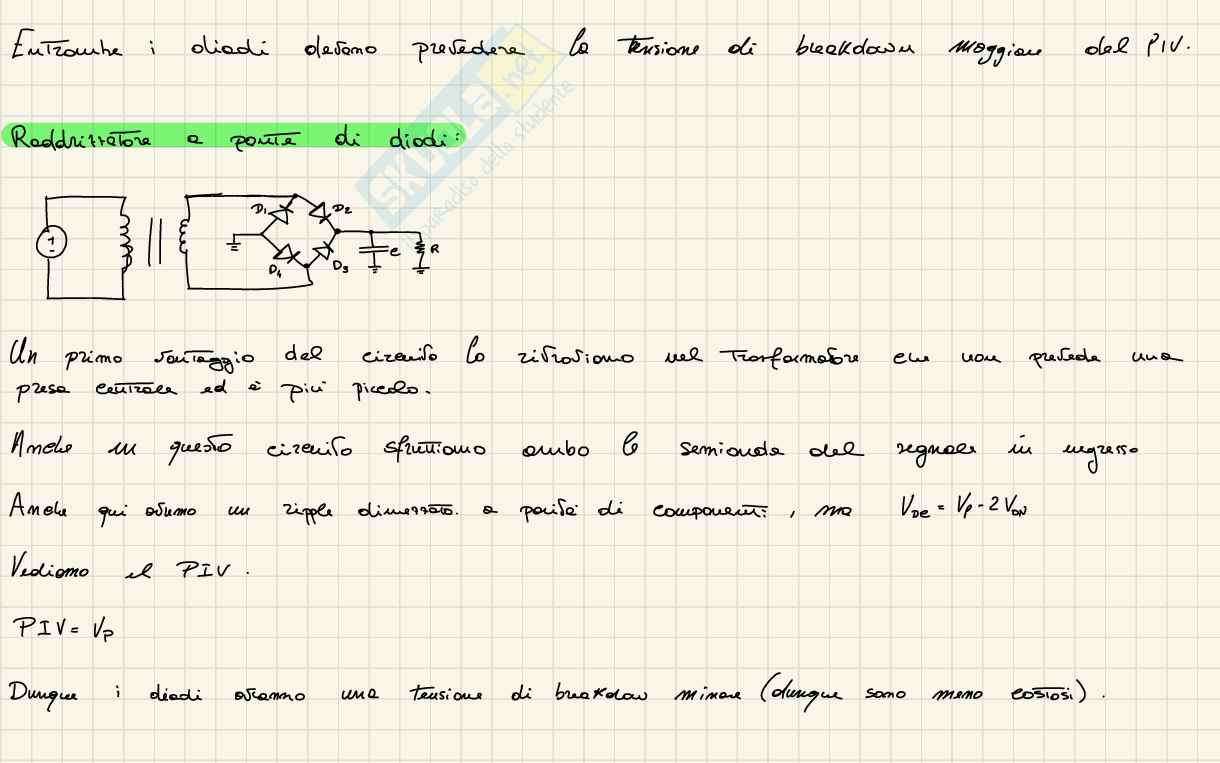 Entrambe i diodi devono prevedere la tensione di breakdown maggiore del PIV.
SKUOLA.net
il paradiso dello studente
Raddrizzatore a ponte di diodi:
D1 D2
1 C R
D4 D3
Un primo vantaggio del circuito lo ritroviamo nel trasformatore che non preveda una
presa centrale ed è più piccolo.
Anche in questo circuito sfruttiamo ambo le semionde del segnale in ingresso
Anche qui avremo un ripple dimezzato. a parità di componenti, ma VDC = Vp - 2 VON
Vediamo il PIV.
PIV = Vp
Dunque i diodi avranno una tensione di breakdow minore (dunque sono meno costosi).